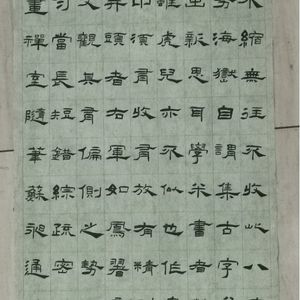 不縮無往不收此八
海嶽自謂集古字
出新意耳學米書者
雖虎兒亦不似也作
中須有收有放有精
并頭者右軍如鳳翥
文觀其有偏側之勢
勻當長短錯綜疏密
畫禪室隨筆蘇昶通